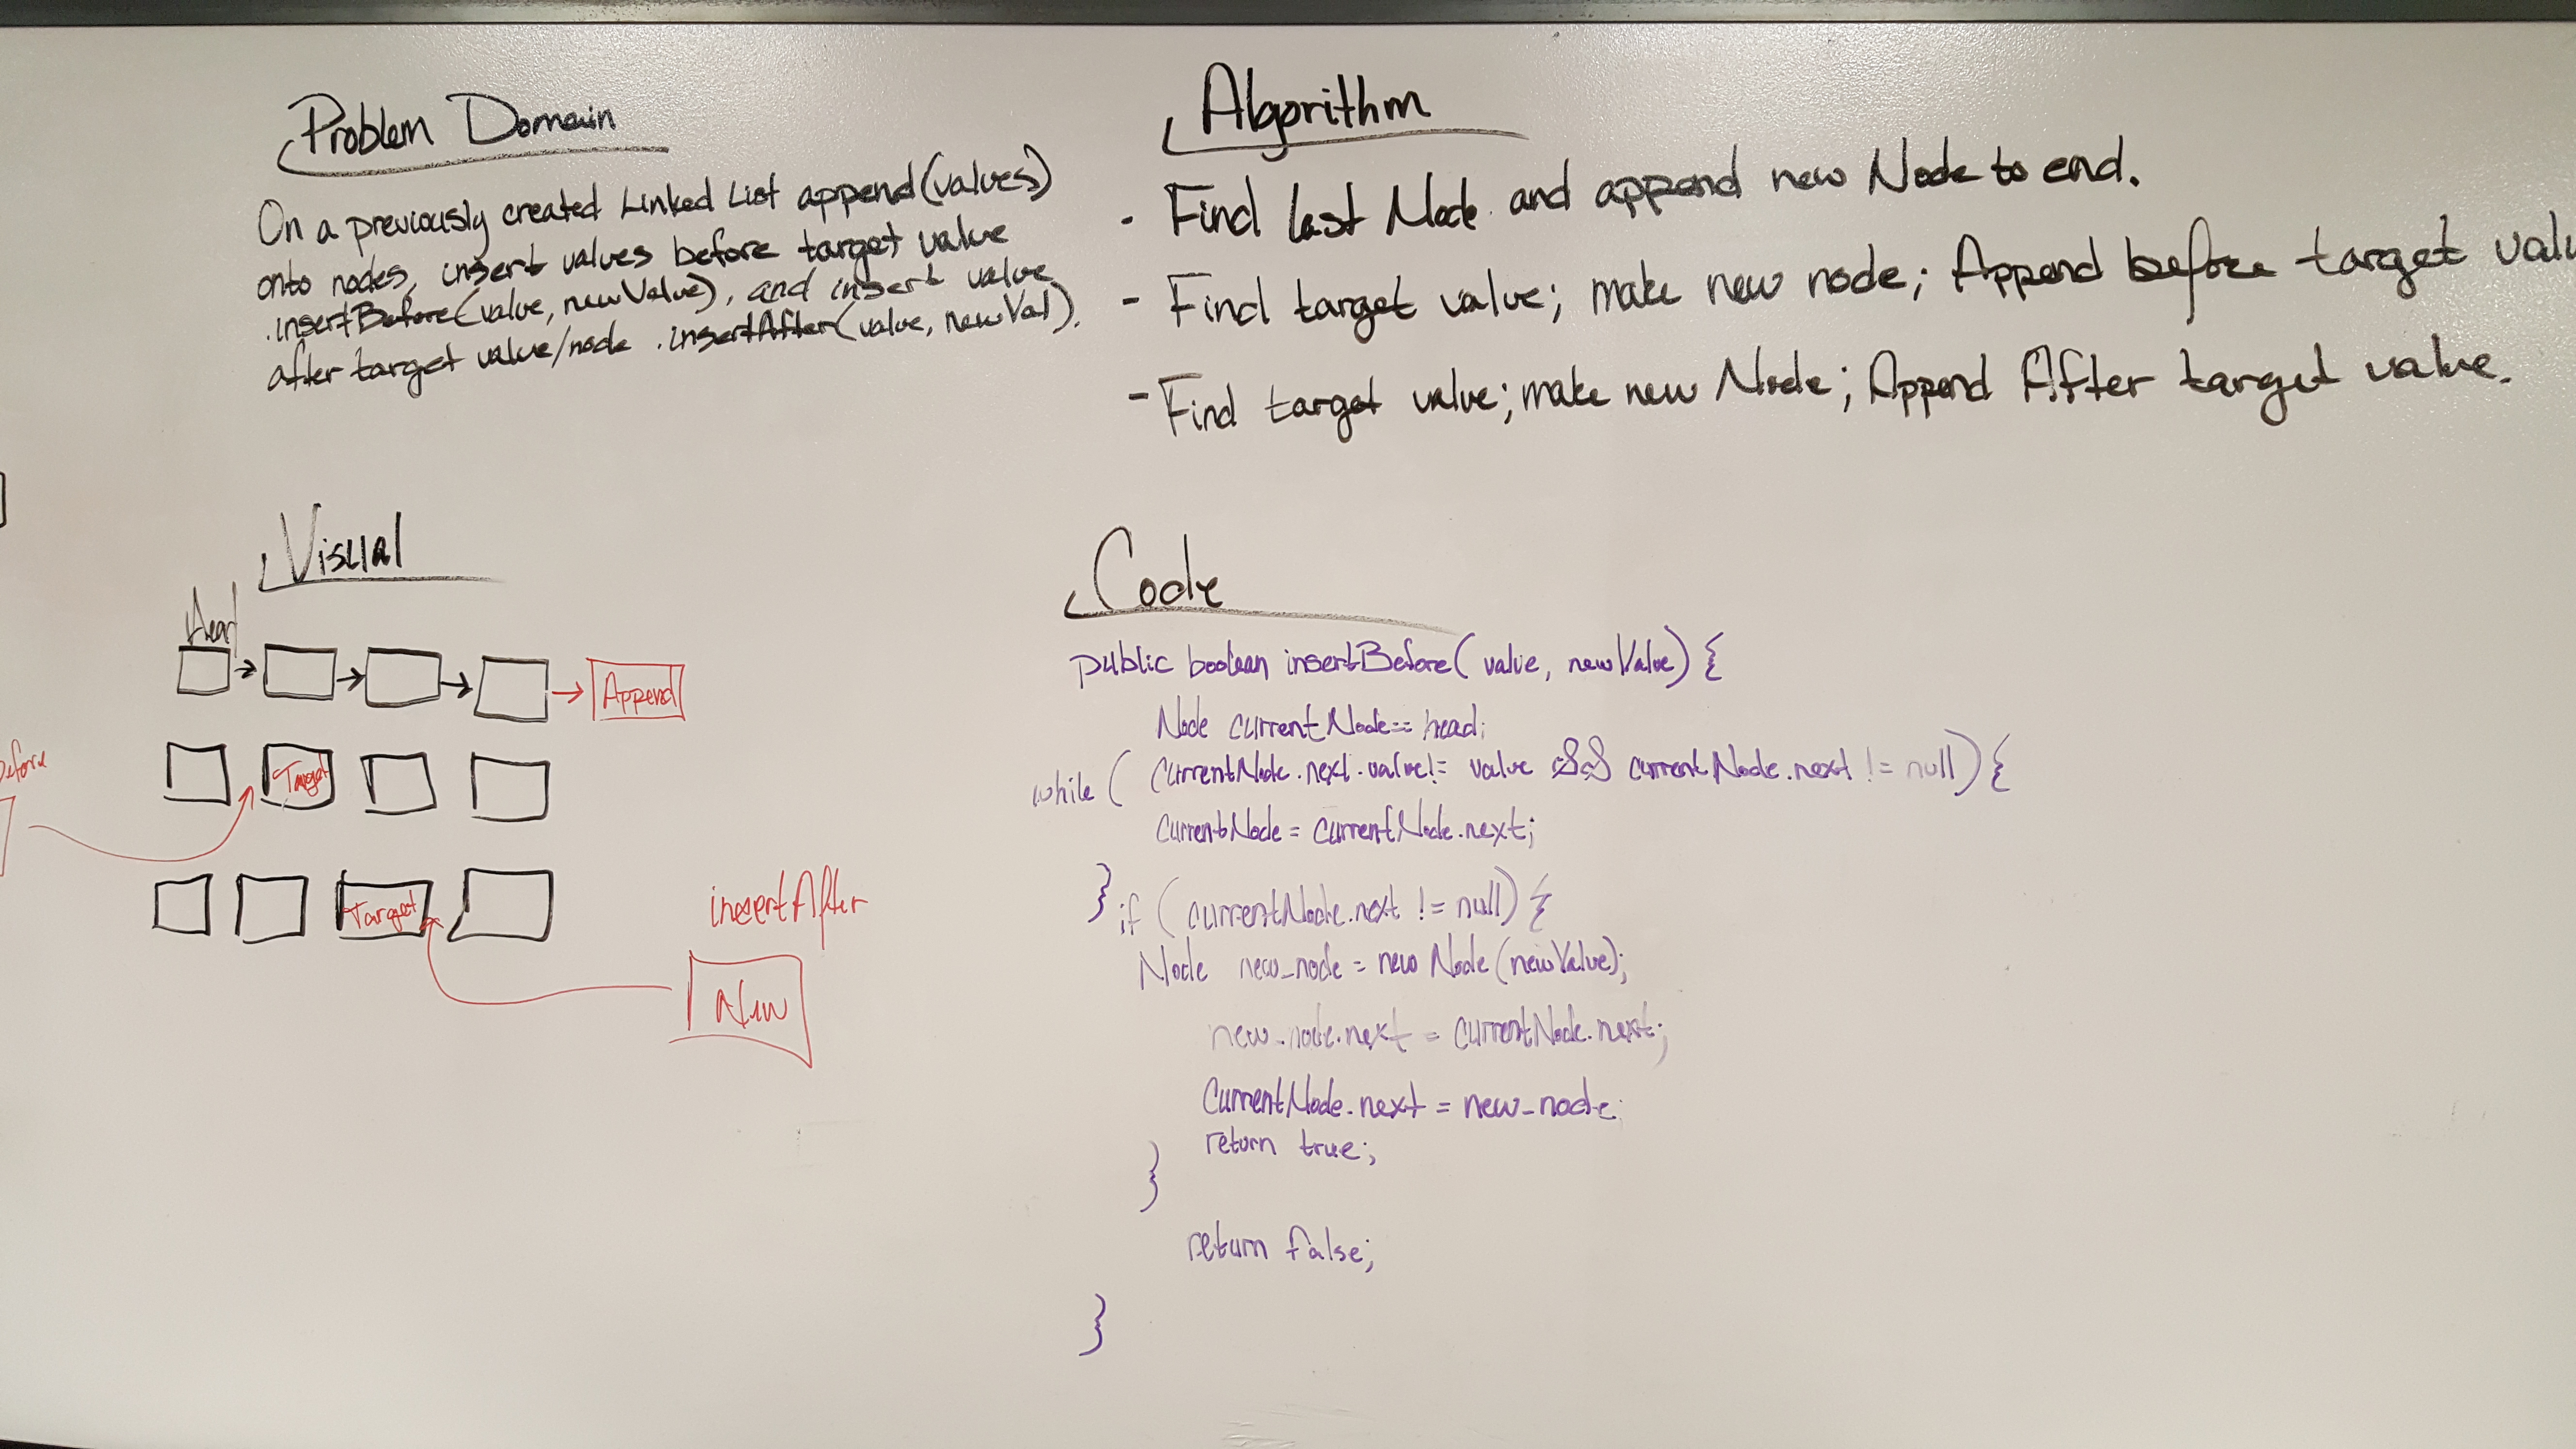 Problem Domain
On a previously created Linked List append(values)
onto nodes, insert values before target value
.insertBefore(value, newValue), and insert value
after target value/node .insertAfter(value, newVal).
Algorithm
- Find last Node and append new Node to end.
- Find target value; make new node; Append before target valu
- Find target value; make new Node; Append After target value.
Visual
Head
Append
Before
Target
Target
insertAfter
New
Code
public boolean insertBefore( value, newValue) {
Node currentNode == head;
while ( currentNode.next.value != value && currentNode.next != null) {
currentNode = currentNode.next;
} if (currentNode.next != null) {
Node new_node = new Node(newValue);
new_node.next = currentNode.next;
currentNode.next = new_node;
return true;
}
return false;
}